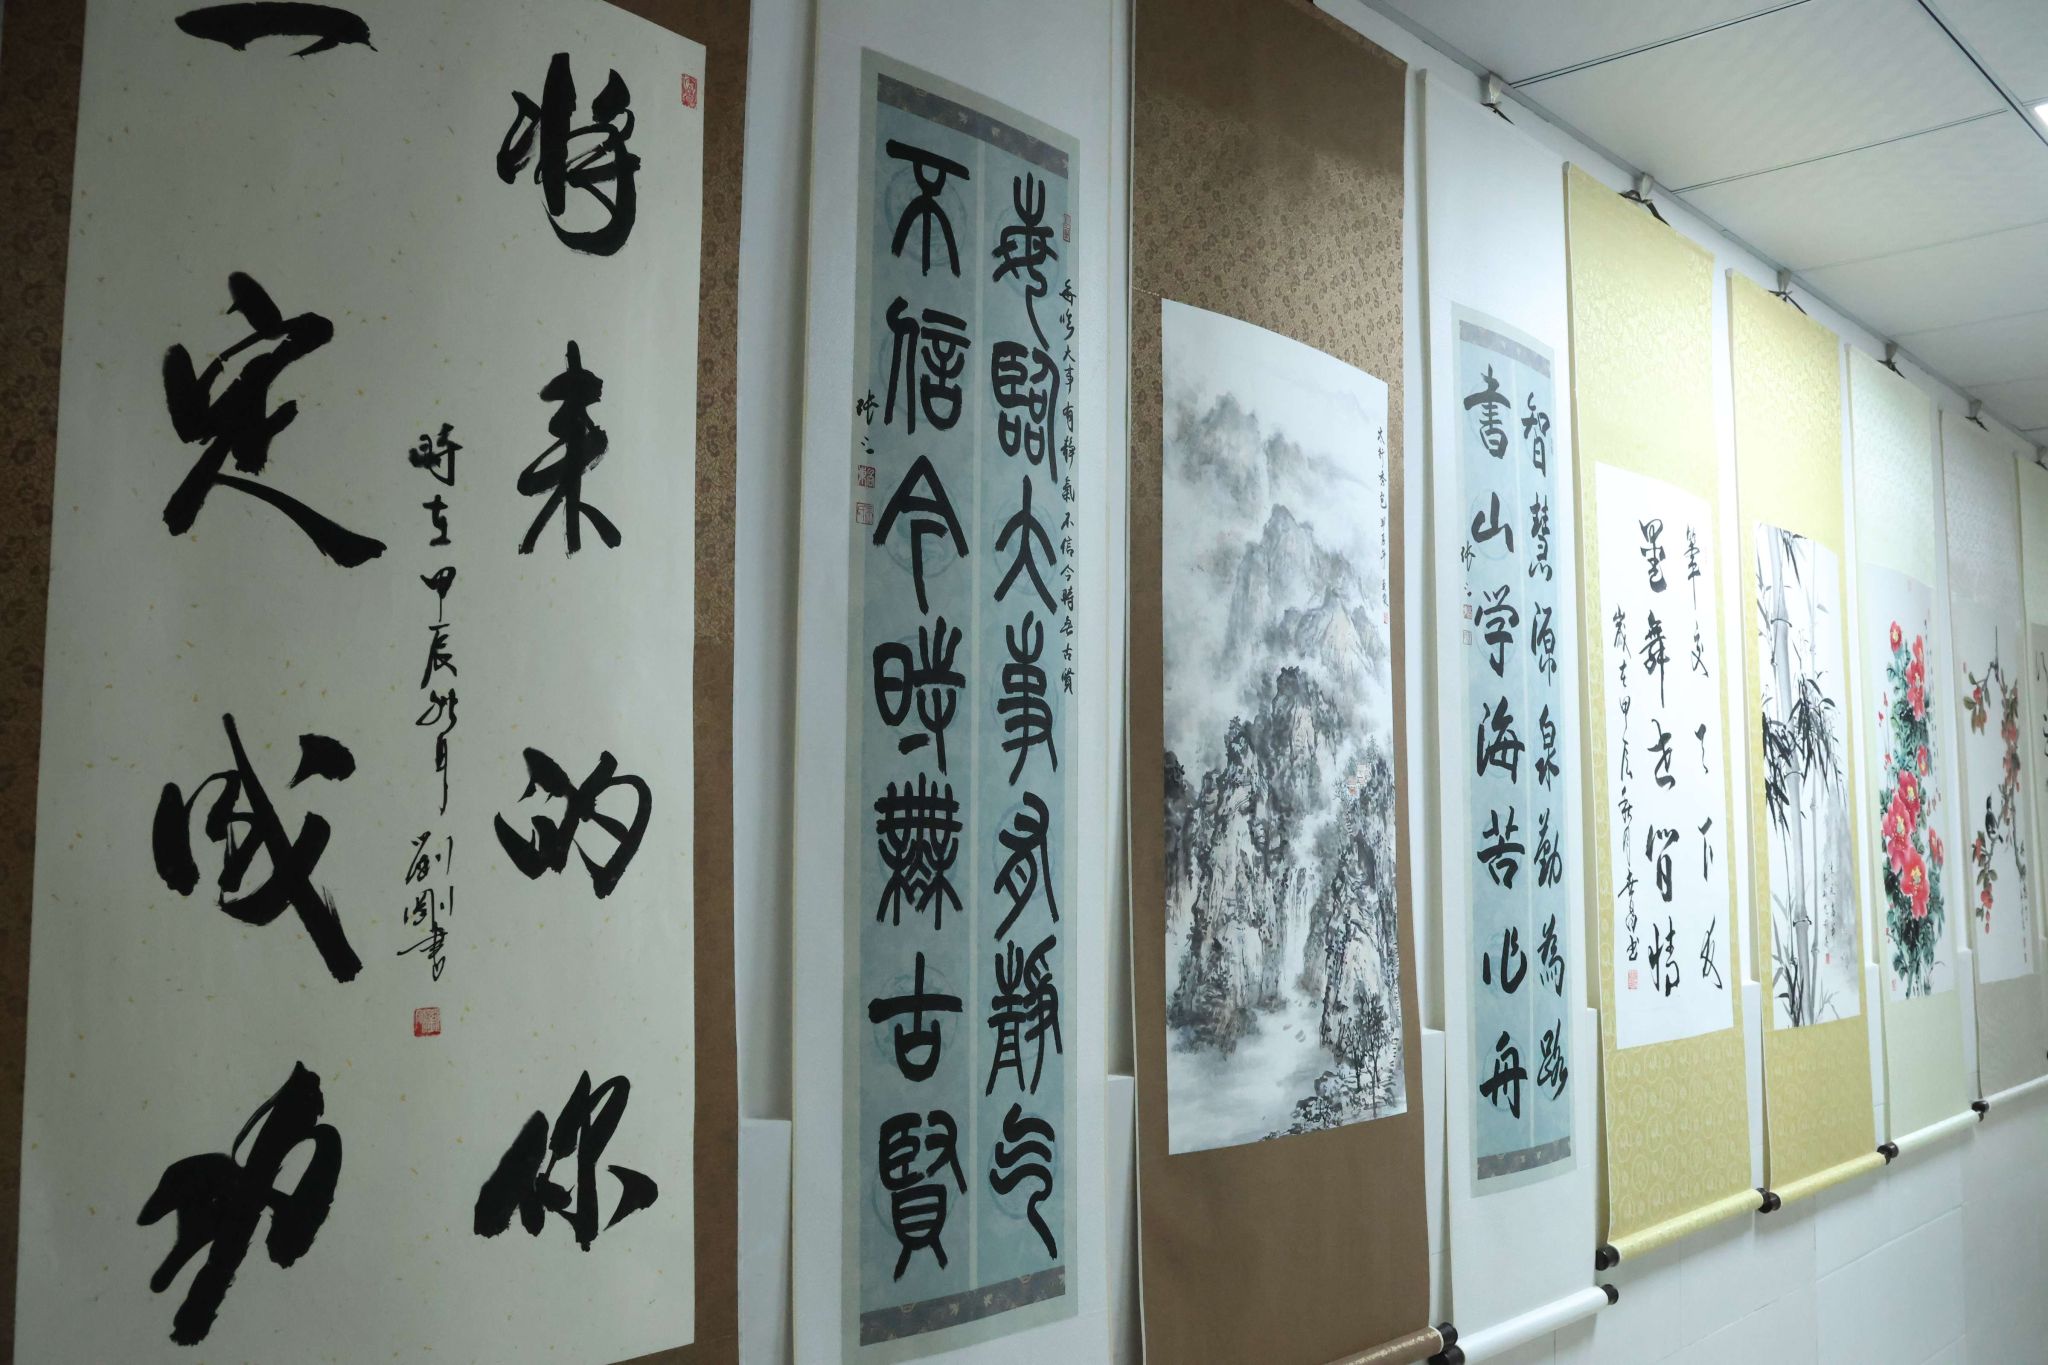 将来的你
一定成功
時在甲辰
劉剛書
每临大事有静氣不信今時無古賢
每臨大事有靜气
不信今時無古賢
智慧源泉勤為路
書山学海苦作舟
筆交天下友
墨舞世间情
歲在甲辰秋月